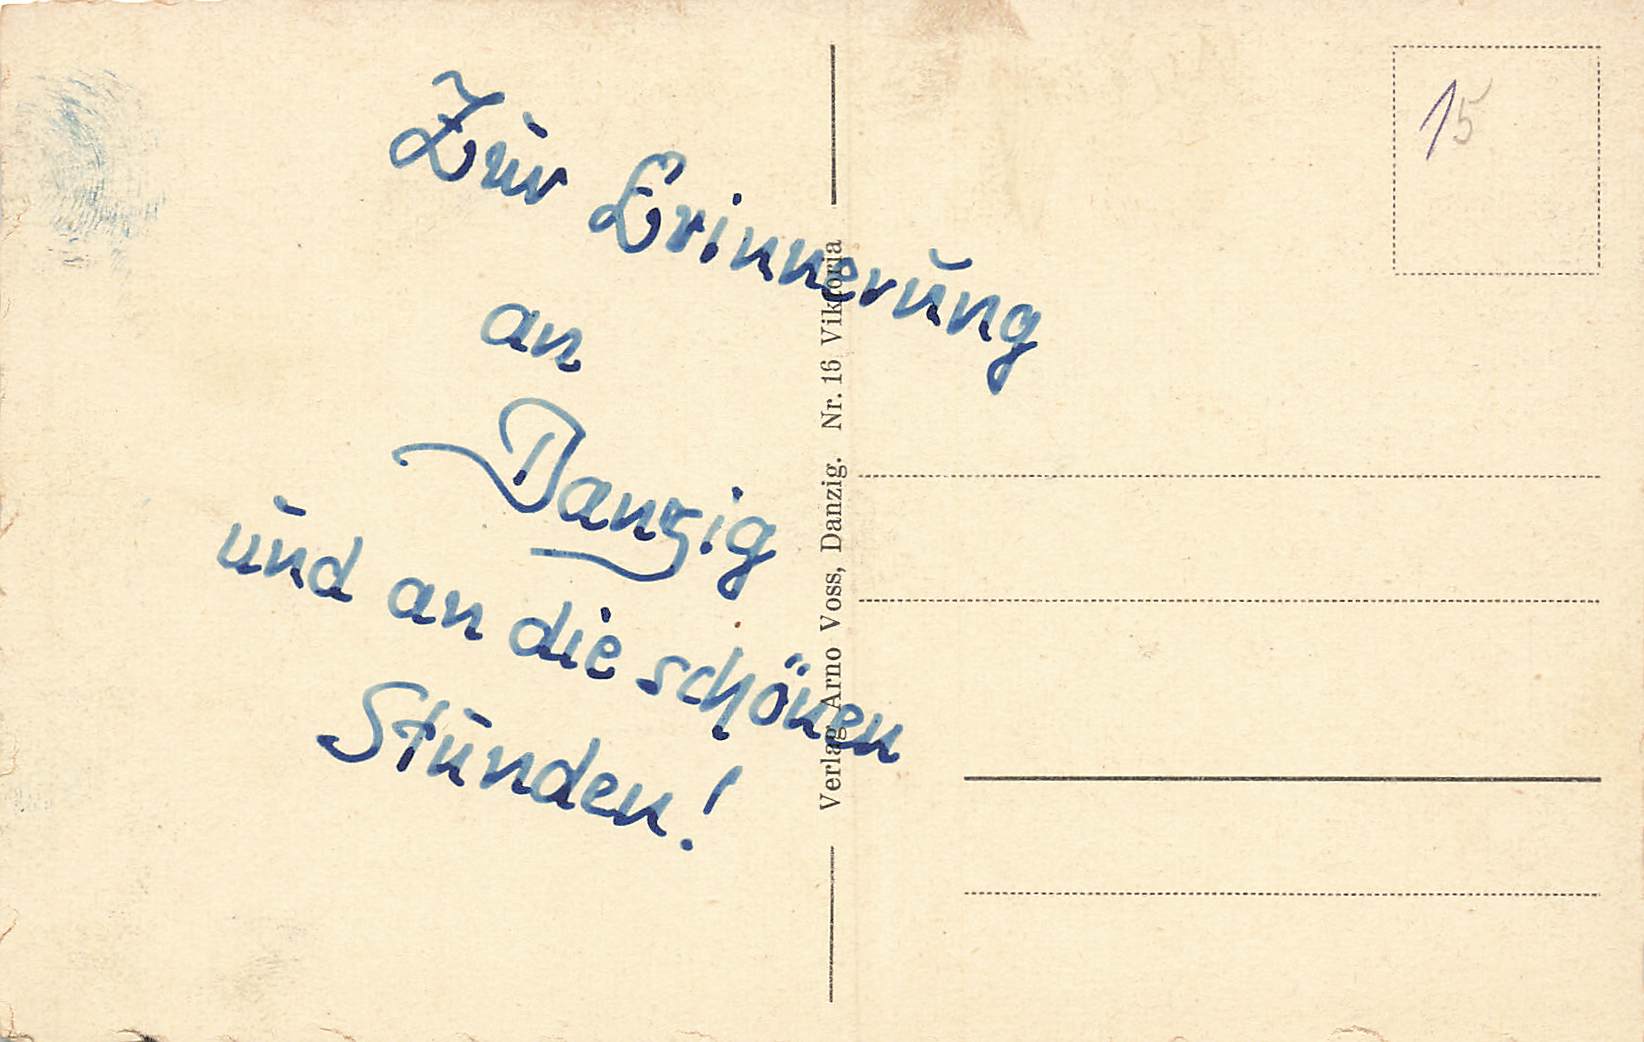 Zur Erinnerung
an
Danzig
und an die schönen
Stunden!
Verlag Arno Voss, Danzig. Nr. 16 Viktoria
15